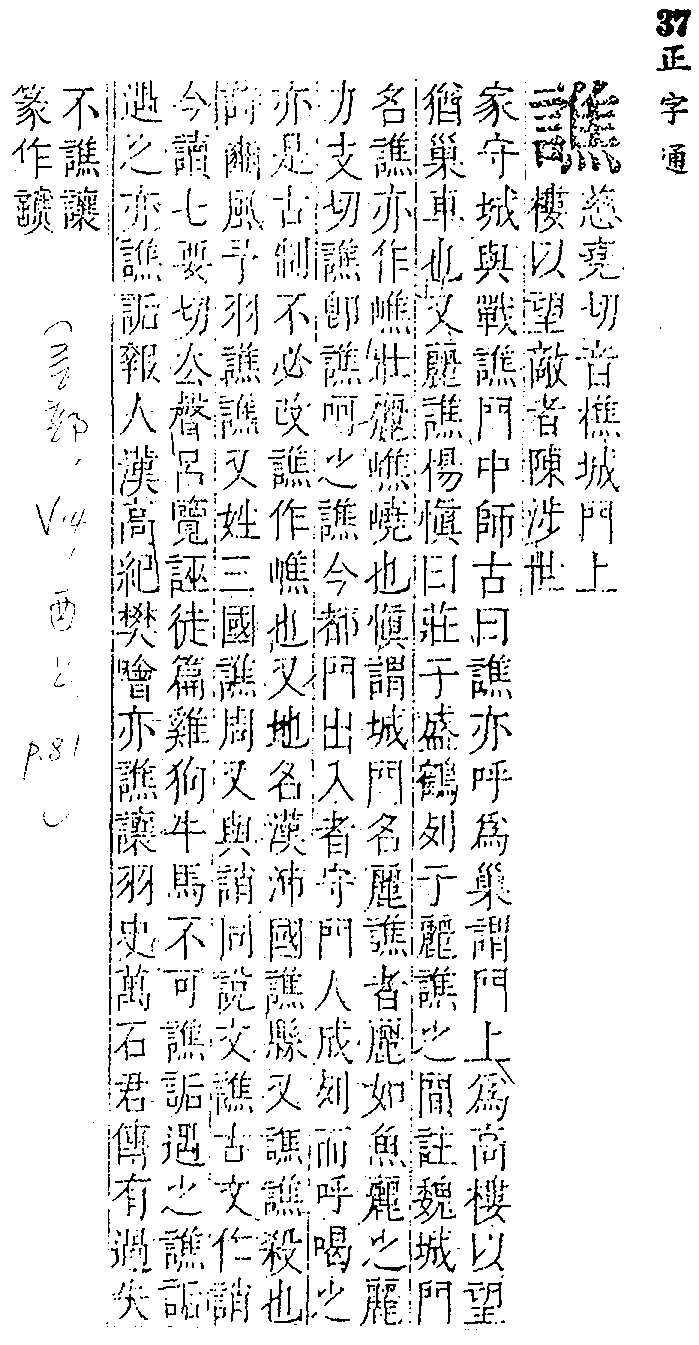 37
正字通
譙
慈堯切音樵城門上
樓以望敵者陳涉世
家守城與戰譙門中師古曰譙亦呼爲巢謂門上爲高樓以望
猶巢車也又麗譙楊愼曰莊子盛鶴列于麗譙之間註魏城門
名譙亦作嶕壯麗嶕嶢也愼謂城門名麗譙者麗如魚麗之麗
力支切譙卽譙呵之譙今都門出入者守門人成列而呼喝之
亦是古制不必改譙作嶕也又地名漢沛國譙縣又譙譙殺也
詩豳風予羽譙譙又姓三國譙周又與誚同說文譙古文作誚
今讀七要切公聲呂覽誣徒篇雞狗牛馬不可譙詬遇之譙詬
遇之亦譙詬報人漢高紀樊噲亦譙讓羽史萬石君傳有過失
不譙讓
篆作
(言部, V.4, 酉上 p.81)